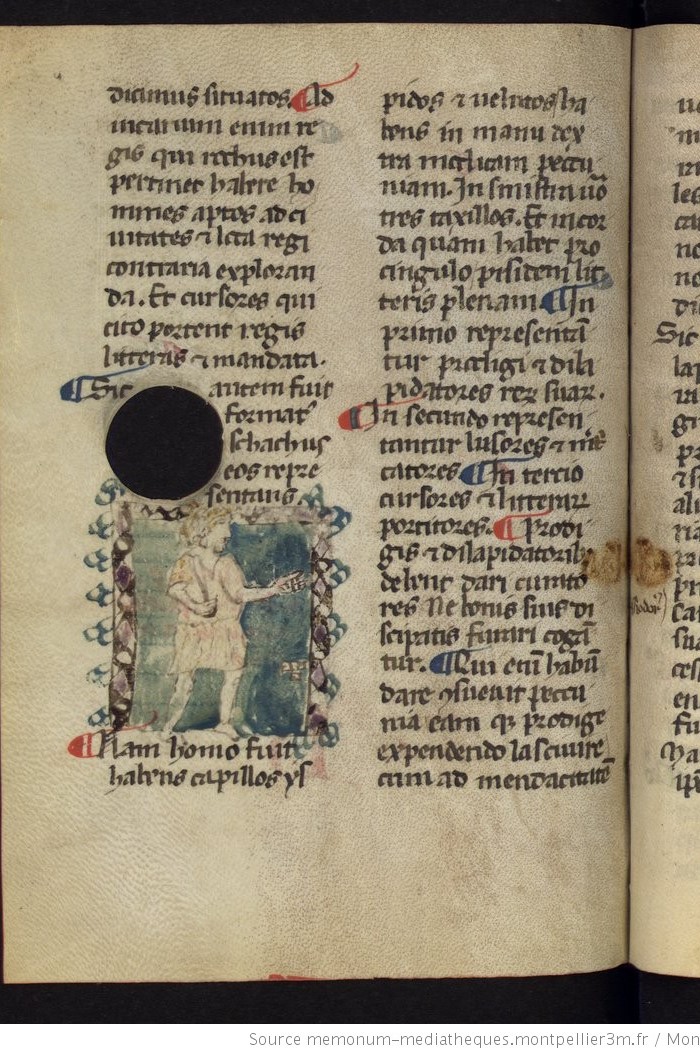 dicimus situatos. Ad
uicarium enim re
gis qui rochus est
pertinet habere ho
mines aptos ad ci
uitates ⁊ loca regi
contraria exploran
da. Et cursores qui
cito portent regis
litteras ⁊ mandata.
Sic autem fuit
format9
schachus
eos repre
sentans.
Nam homo fuit
habens capillos ys
pidos ⁊ uelutos ha
bens in manu dex
tra modicam peccu
niam. In sinistra uo
tres taxillos. Et in cor
da quam habet pro
cingulo pisidem lit
teris plenam. In
primo representan
tur prodigi ⁊ dila
pidatores rerum suarum.
In secundo represen
tantur lusores ⁊ me
catores. In tercio
cursores ⁊ litterarum
portitores. Prodi
gis ⁊ dilapidatorib9
debent dari curato
res ne bonis suis di
scipatis furari cogan
tur. Qui enim habun
dare 9sueuit peccu
nia eam qz prodige
expendendo lasciuire
cum ad mendacitatem
Sic
Source memonum-mediatheques.montpellier3m.fr / Mon